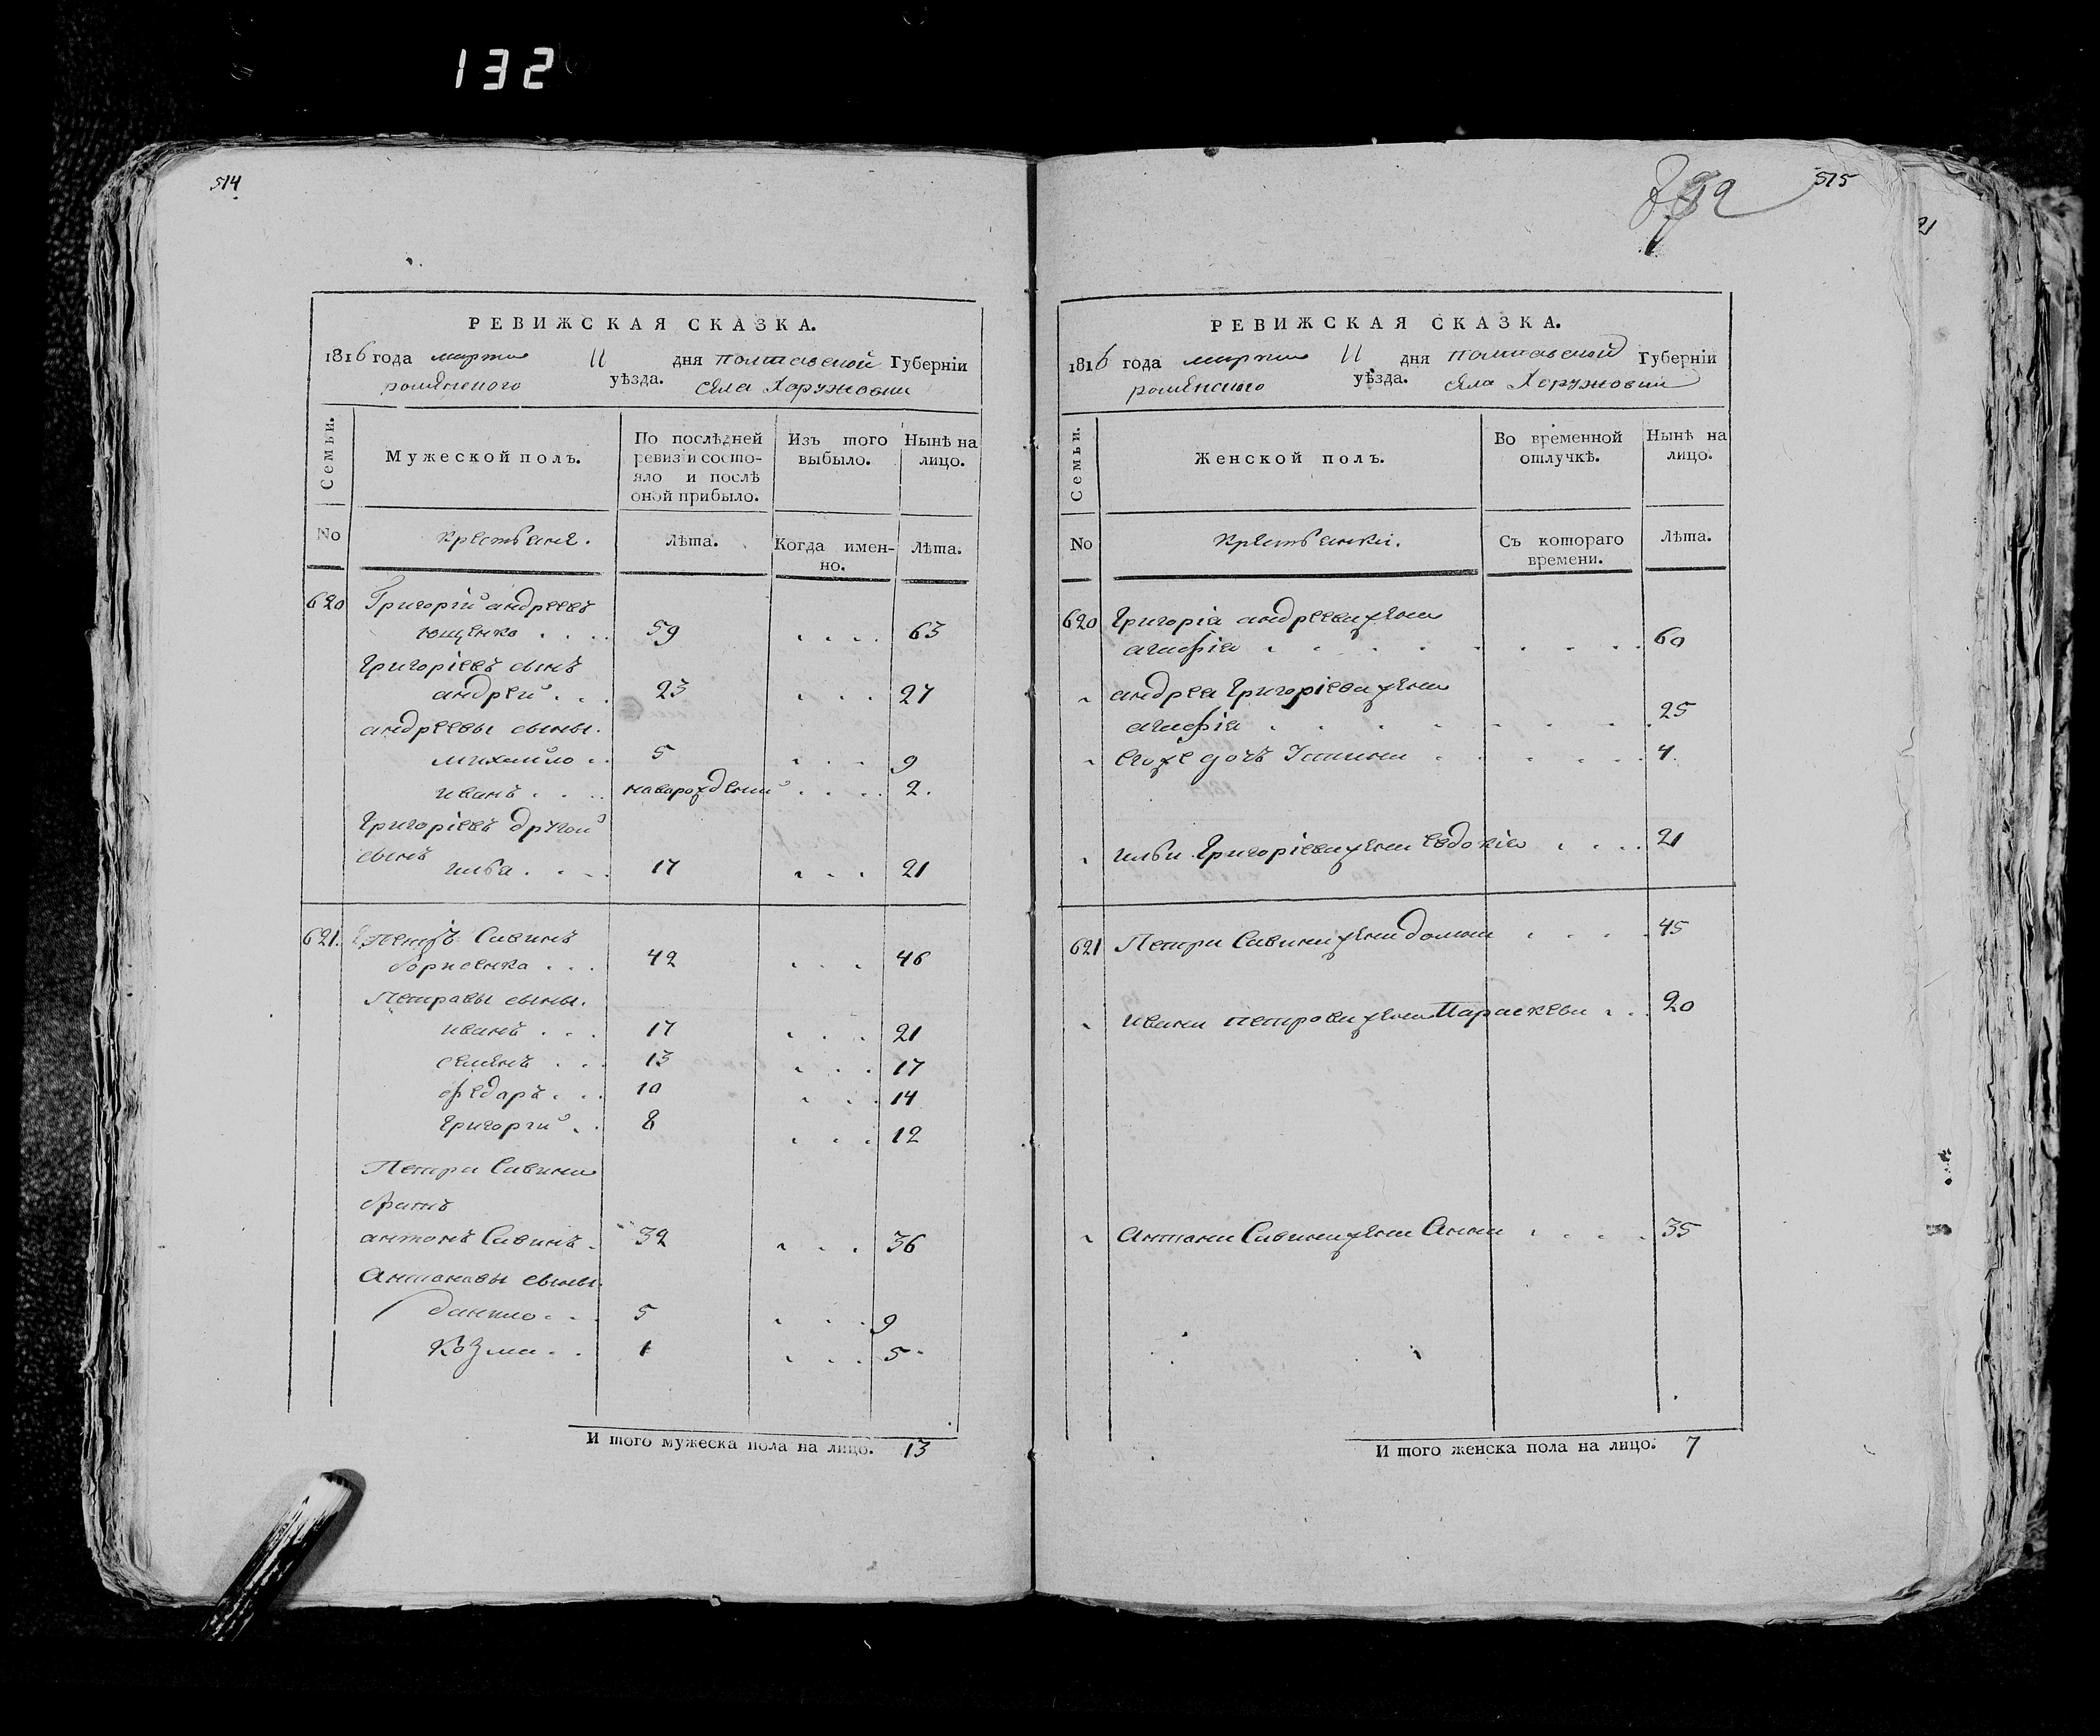 132
514
РЕВИЖСКАЯ СКАЗКА.
1816 года марта 11 дня полтавской Губернїи
роменского уѣзда. села Хоружовки
Семьи.
Мужеской полъ.
По послѣдней ревизїи состояло и послѣ оной прибыло.
Изъ того выбыло.
Нынѣ на лицо.
No
крестьяне.
Лѣта.
Когда именно.
Лѣта.
620 Григорій андреевъ
ющенко . . . . 59 . . . . 63
Григорїевъ сынъ
андрей . . . 23 . . . 27
андреевы сыны.
михайло . . 5 . . . 9
иванъ . . . . новорожденій . . . . 2.
Григорїевъ другой
сынъ
илья . . . . 17 . . . 21
621. Петръ Савинъ
борисенко . . . 42 . . . 46
Петровы сыны.
иванъ . . . 17 . . . 21
семенъ . . . 13 . . . 17
федоръ . . . 10 . . . 14
григорий . . 8 . . . 12
Петра Савина
братъ
антонъ Савинъ . 32 . . . 36
Антоновы сыны.
данило . . . 5 . . . 9
Козма . . 1 . . . 5
И того мужеска пола на лицо. 13
515
РЕВИЖСКАЯ СКАЗКА.
1816 года марта 11 дня полтавской Губернїи
роменского уѣзда. села Хоружовки
Семьи.
Женской полъ.
Во временной отлучкѣ.
Нынѣ на лицо.
No
крестьянки.
Съ котораго времени.
Лѣта.
620 Григорїа андреева жена
агафїа . . . . . . . . 60
андреа Григорїева жена
агафїа . . . . . . . . 25
его же дочь Устина . . . . . . 4.
ильи Григорїева жена Евдокїа . . . . 21
621 Петра Савина жена домна . . . . 45
ивана петрова жена Параскева . . . 20
Антона Савина жена Анна . . . . 35
И того женска пола на лицо. 7